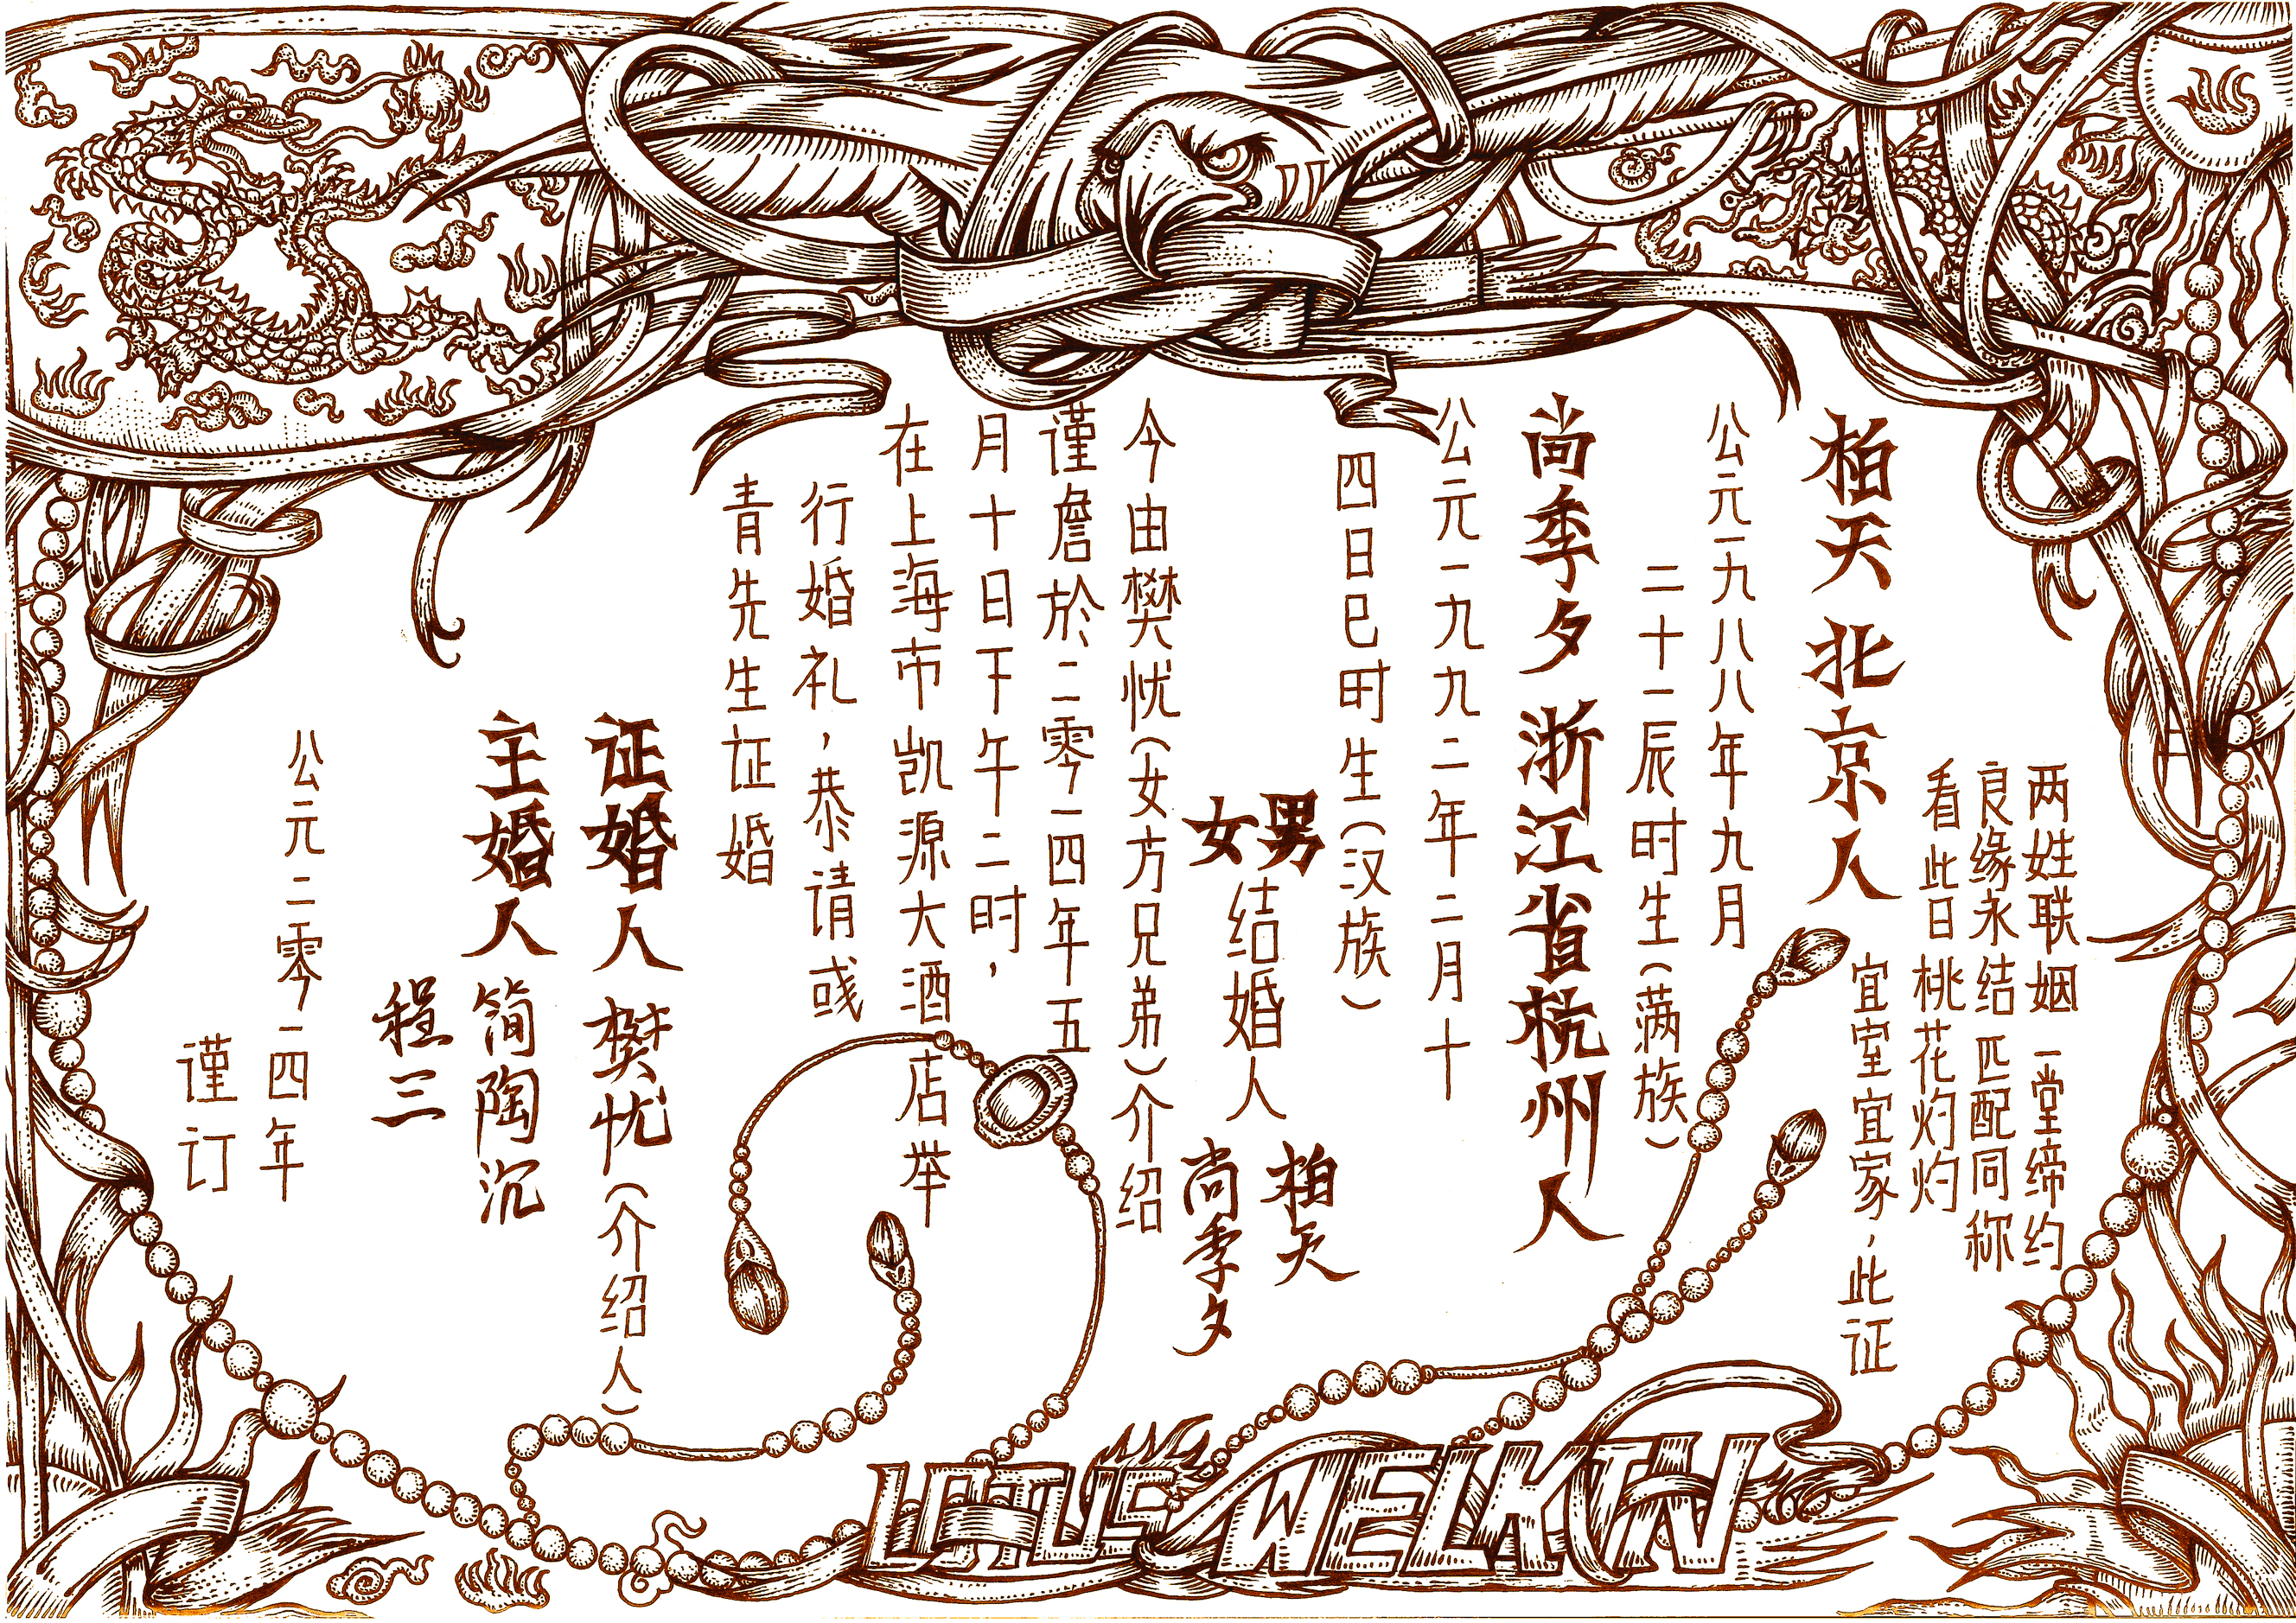 两姓联姻 一堂缔约
良缘永结 匹配同称
看此日桃花灼灼
宜室宜家，此证
柏天 北京人
公元一九八八年九月
二十一辰时生（满族）
尚季夕 浙江省杭州人
公元一九九二年二月十
四日巳时生（汉族）
男
女
结婚人
柏天
尚季夕
今由樊忧（女方兄弟）介绍
谨詹於二零一四年五
月十日下午二时，
在上海市凯源大酒店举
行婚礼，恭请彧
青先生证婚
证婚人 樊忧（介绍人）
主婚人 简陶沉
程三
公元二零一四年
谨订
LOTUS WELKIN